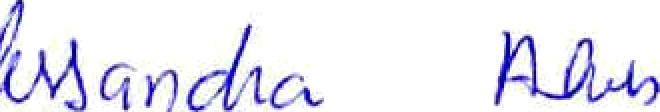 essandra Alves